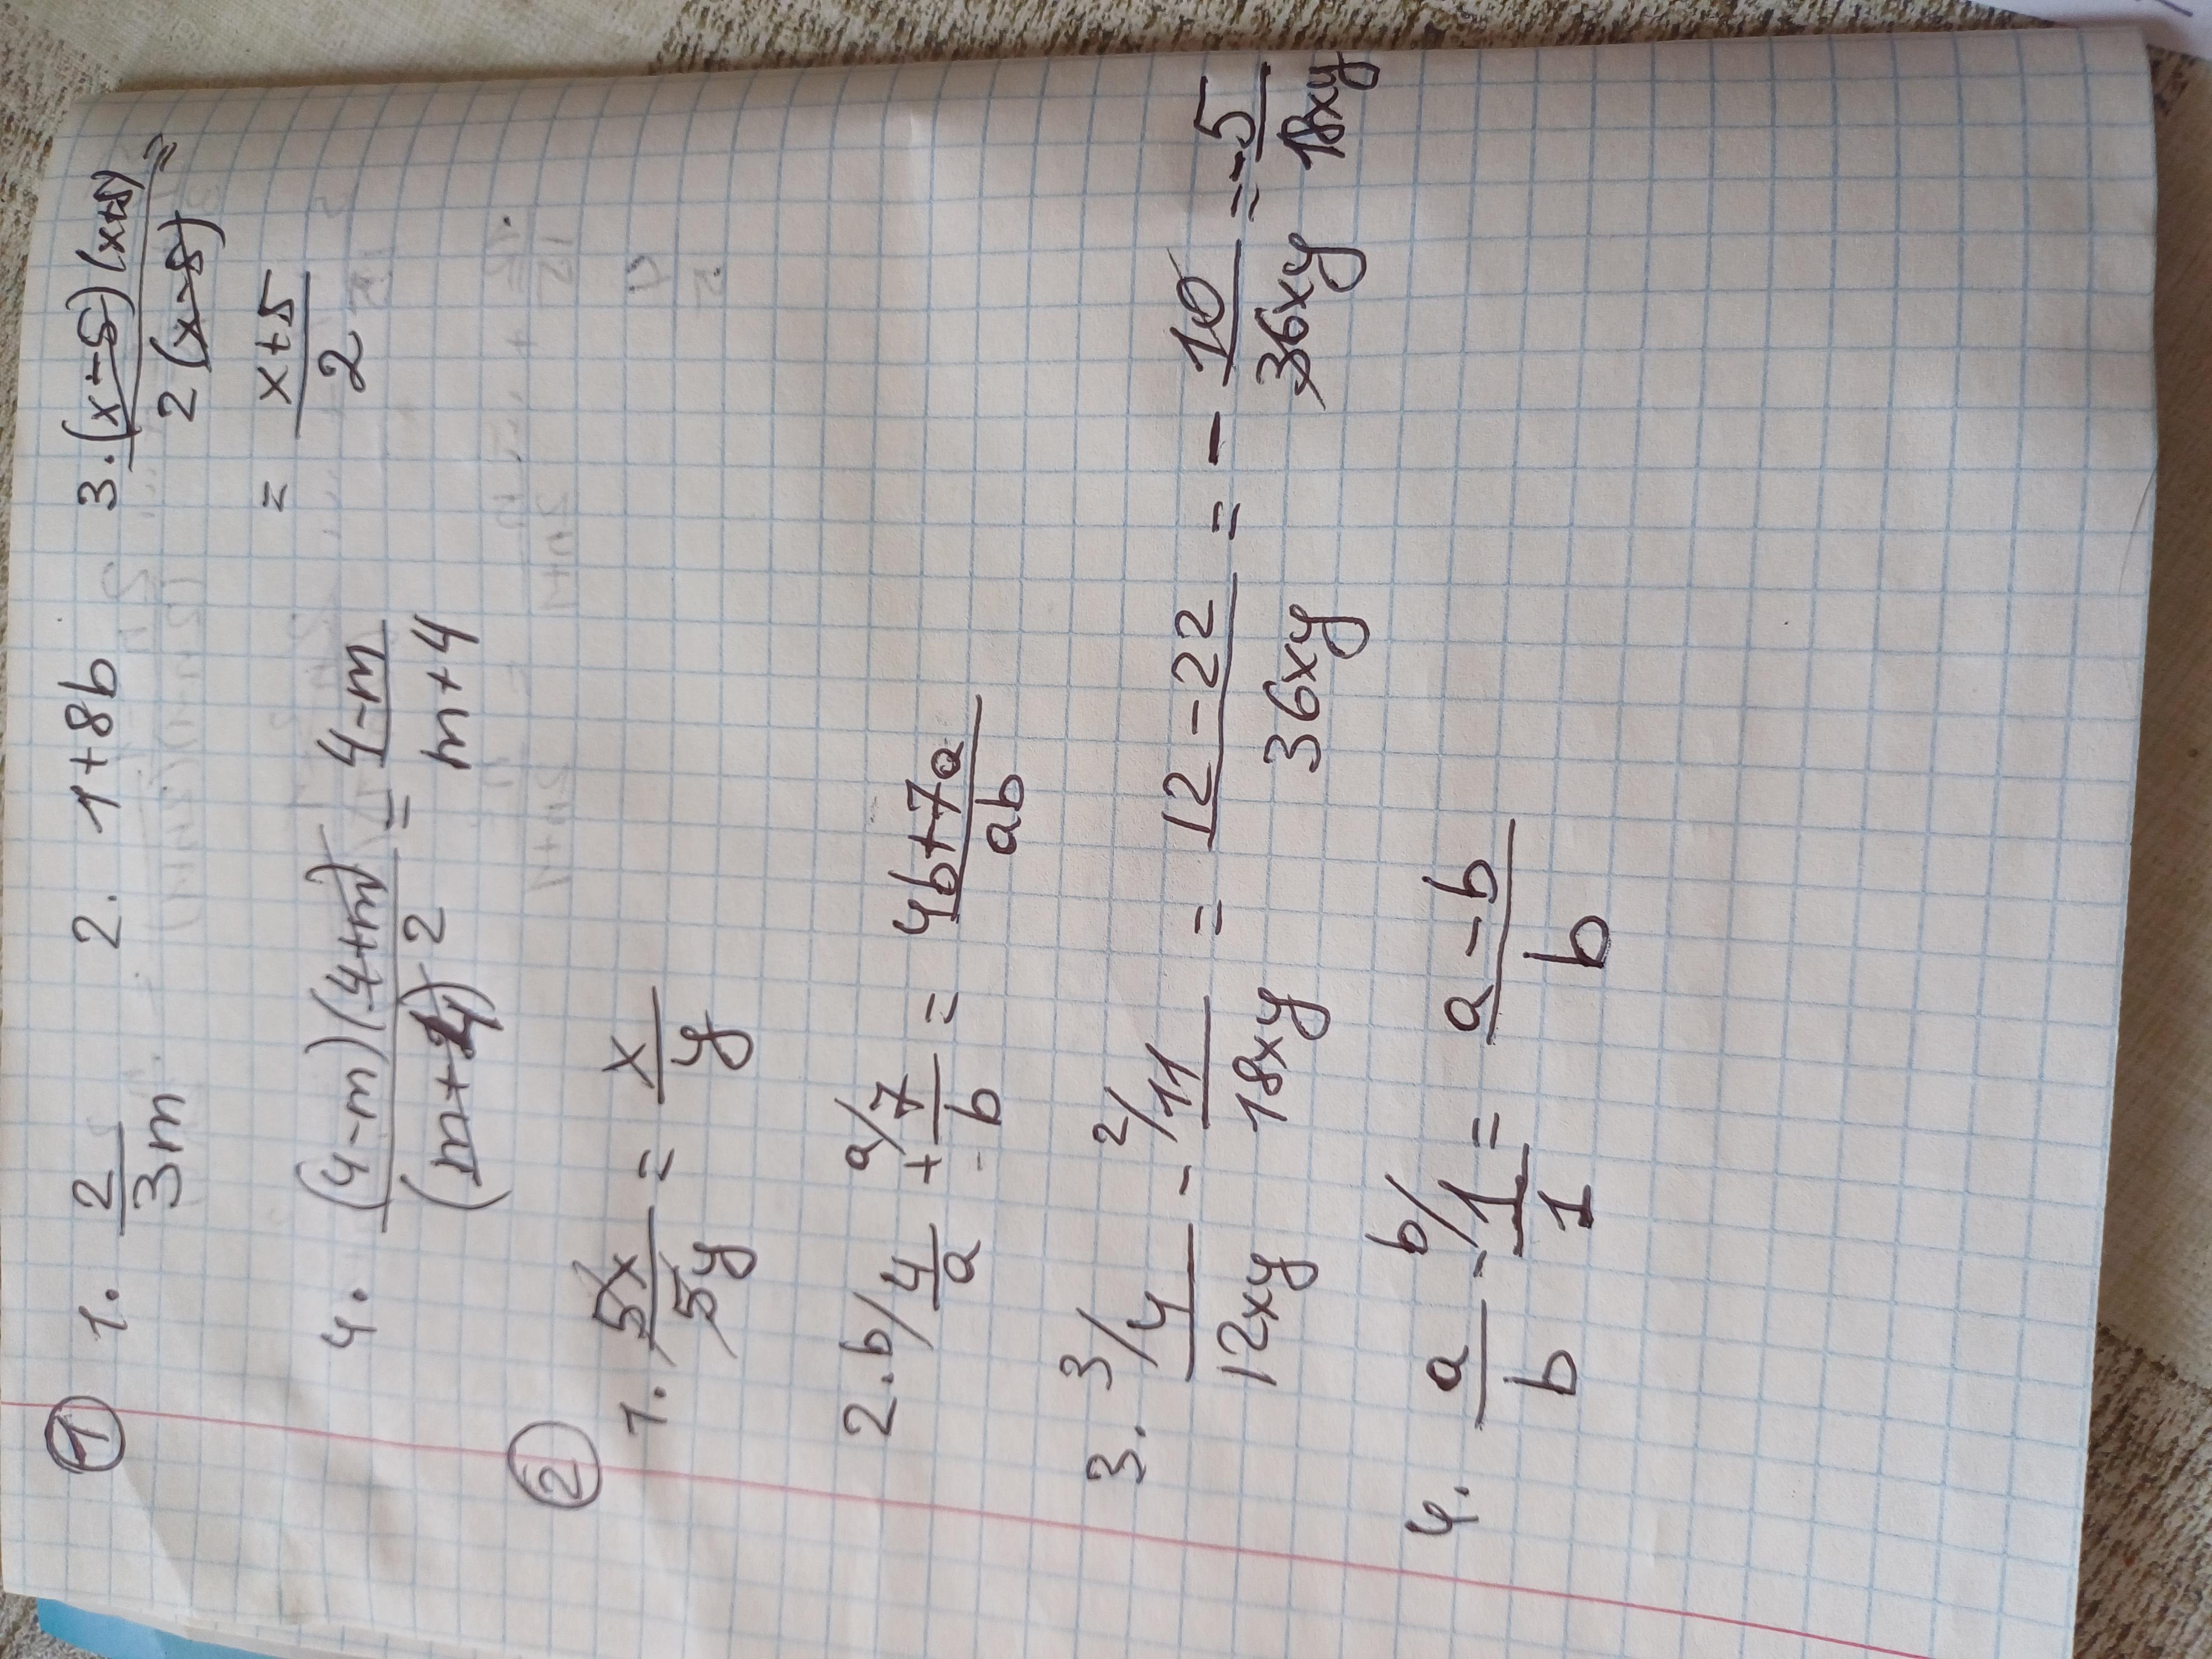 ① 1. 2/3m 2. 1+8b 3. (x-5)(x+5)/2(x-5) =
= x+5/2
4. (4-m)(4+m)/(m+4)² = 4-m/m+4
② 1. 5x/5y = x/y
2. b/ 4/a + a/ 7/b = 4b+7a/ab
3. 3/ 4/12xy - 2/ 11/18xy = 12-22/36xy = - 10/36xy = - 5/18xy
4. a/b - b/ 1/1 = a-b/b